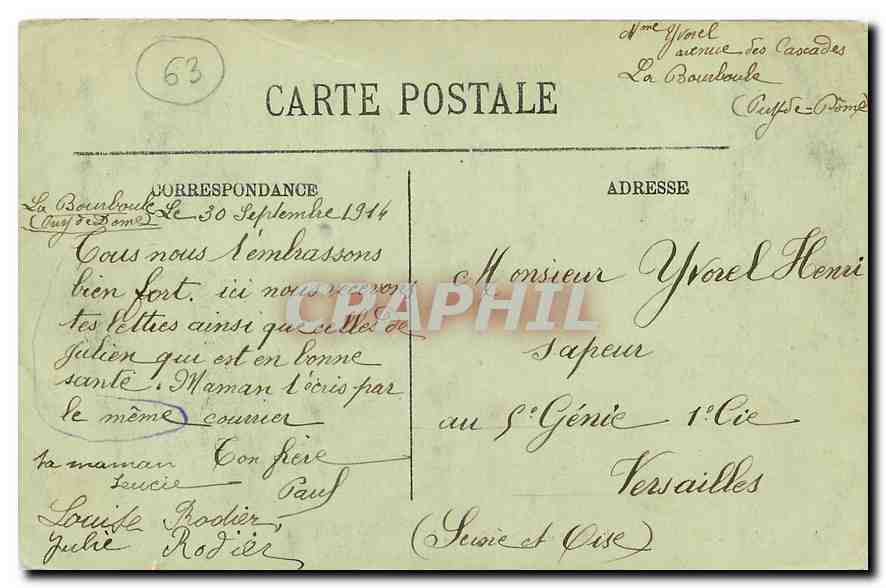 63
Mme Yvorel
avenue des Cascades
La Bourboule
(Puy de=Dôme
CARTE POSTALE
CORRESPONDANCE
ADRESSE
La Bourboule Le 30 Septembre 1914
(Puy de Dôme)
Tous nous t'embrassons
bien fort. ici nous recevons
tes lettres ainsi que celles de
Julien qui est en bonne
santé. Maman t'écris par
le même courrier
Ton frère
Paul
ta maman
Leucie
Louise Rodier
Julie Rodier
Monsieur Yvorel Henri
sapeur
au 5e Génie 1e Cie
Versailles
(Seine et Oise)
CRAPHIL